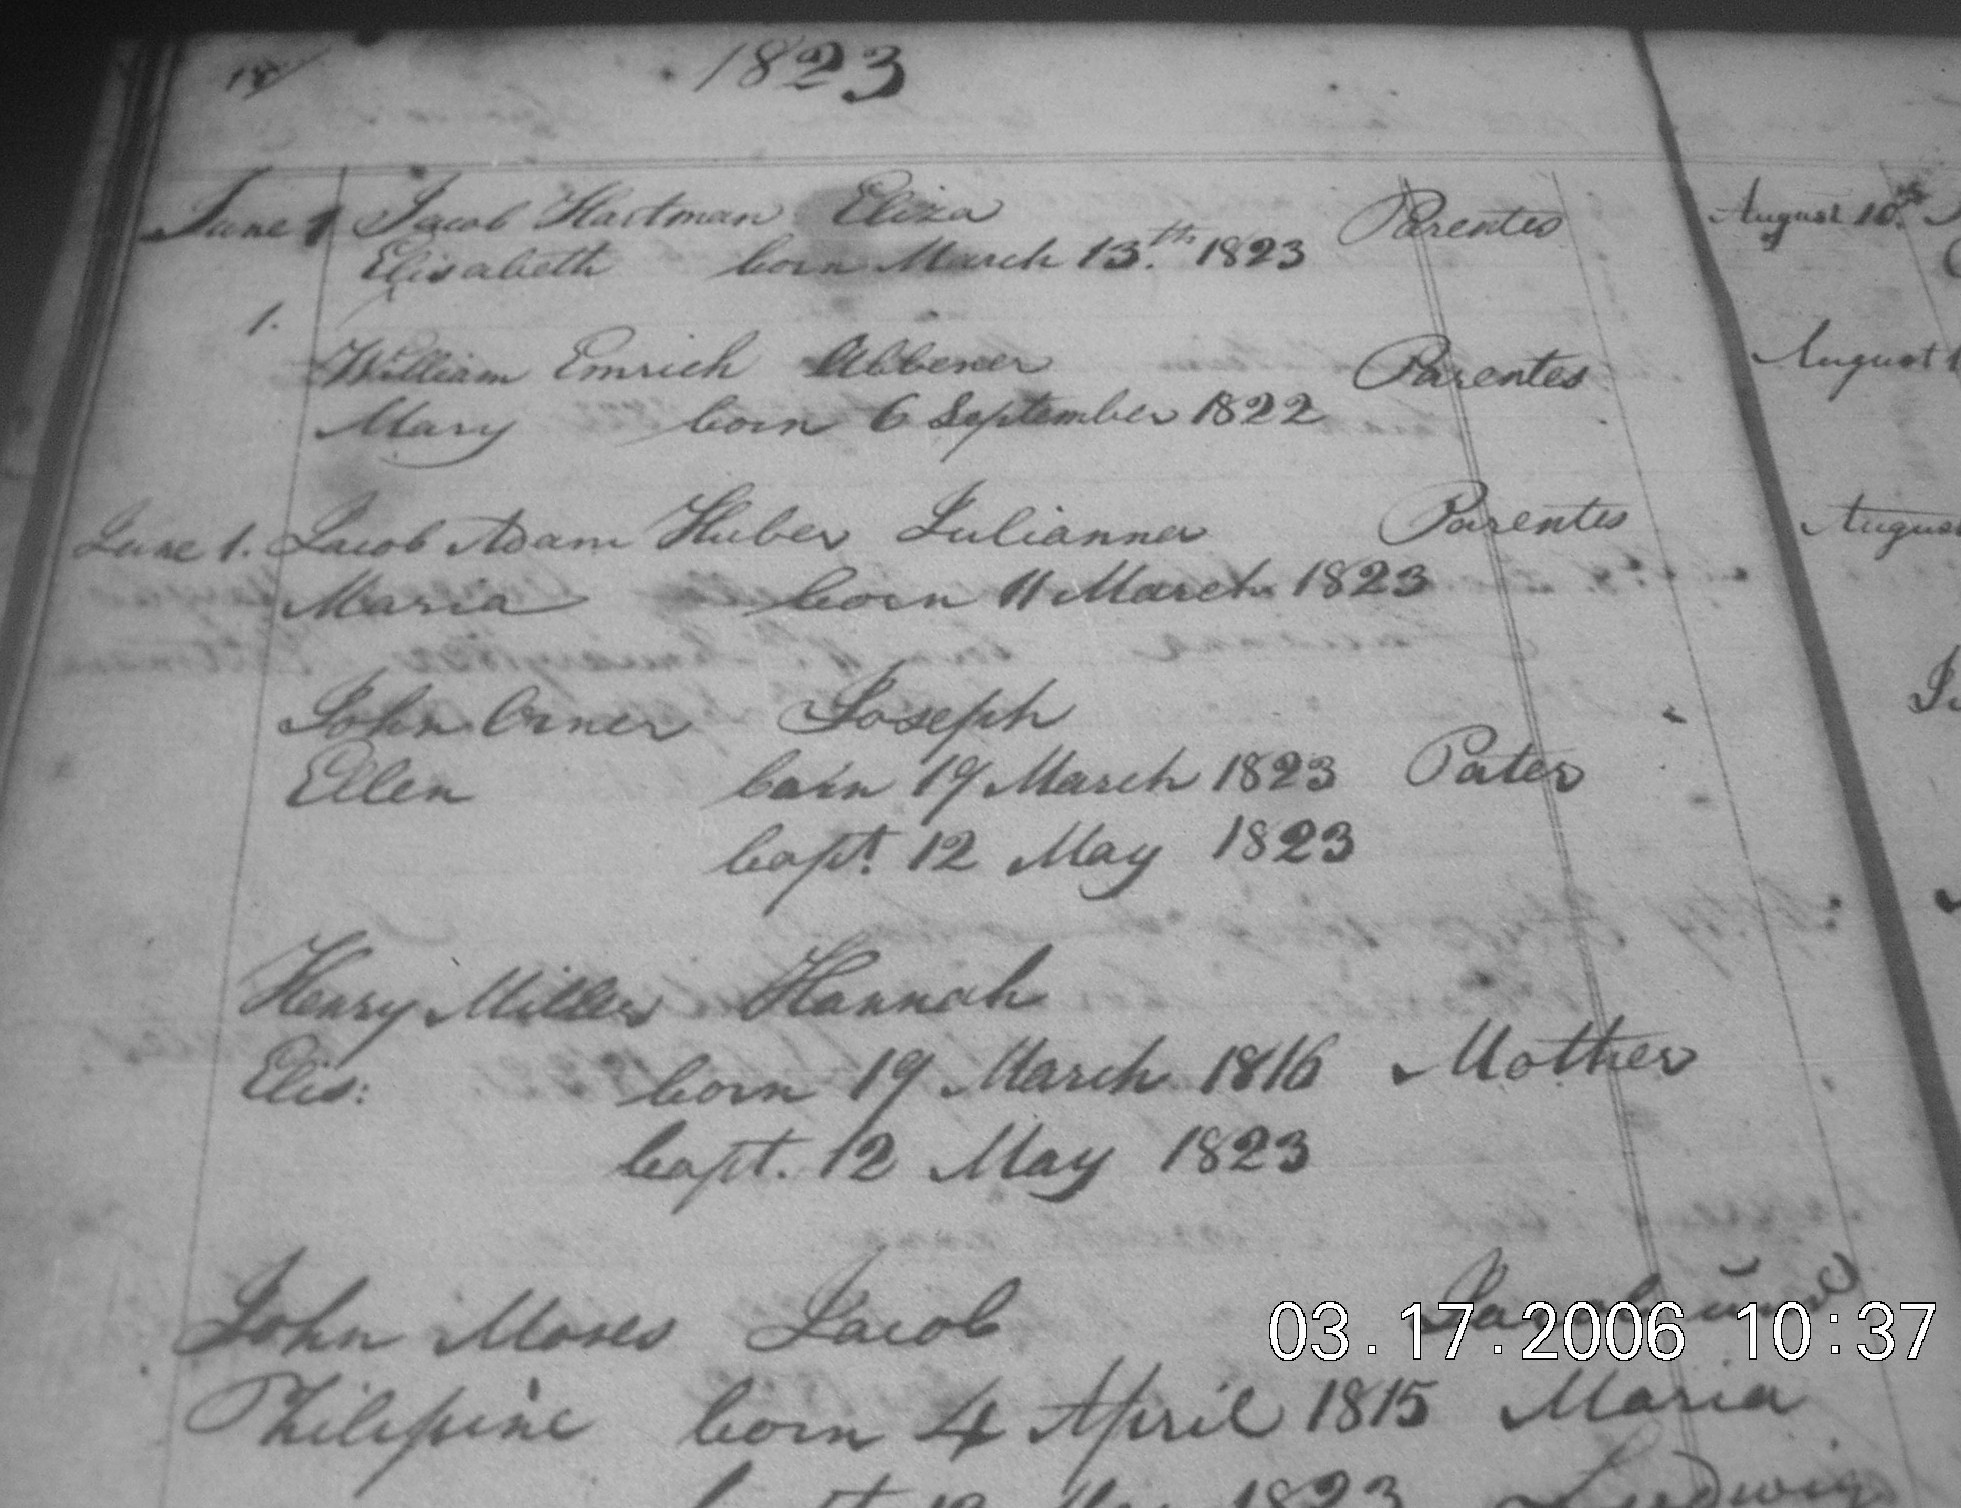 1823
June 1 Jacob Hartman Eliza Parentes
Elisabeth born March 13.th 1823
1.
William Emrich Abbener Parentes
Mary born 6 September 1822
June 1. Jacob Adam Huber Julianna Parentes
Maria born 11 March 1823
John Orner Joseph
Ellen born 19 March 1823 Pater
bapt. 12 May 1823
Henry Miller Hannah
Elis: born 19 March 1816 Mother
bapt. 12 May 1823
John Moses Jacob Sarah und
Philipine born 4 April 1815 Maria
1823 Ludwig
August 10.th
August 1
August
03.17.2006 10:37